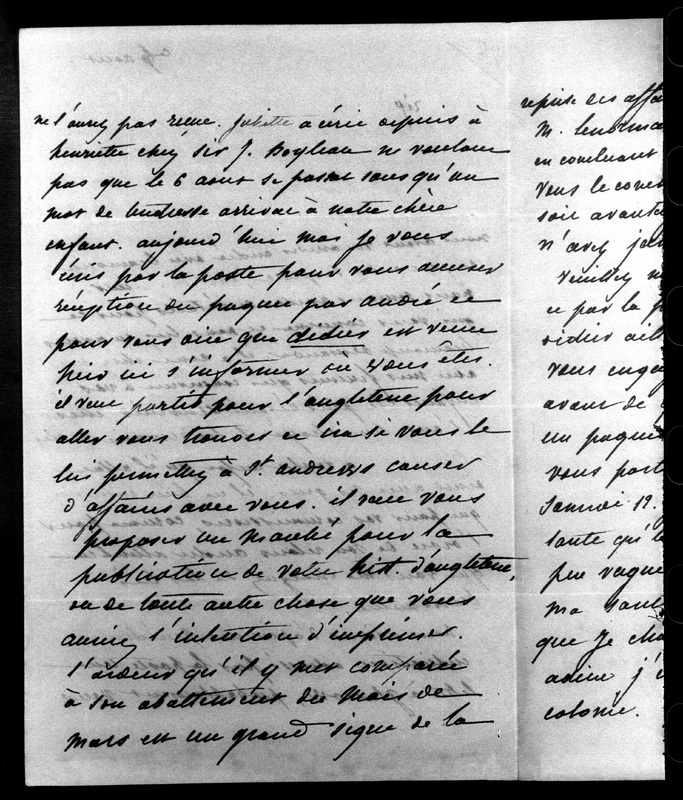 ne l'aurez pas reçue. Juliette a écrit depuis à
henriette chez Sir J. Boyleau ne voulant
pas que le 6 aout se passat sans qu'un
mot de tendresse arrivat à notre chère
enfant. aujourd'hui moi je vous
écris par la poste pour vous accuser
réception du paquet par andré et
pour vous dire que didier est venu
hier ici s'informer ou vous êtes.
il veut partir pour l'angleterre pour
aller vous trouver et ira si vous le
lui permettez à St. andrews causer
d'affaires avec vous. il veut vous
proposer un marché pour la
publication de votre hist. d'angleterre,
ou de toute autre chose que vous
auriez l'intention d'imprimer.
l'ardeur qu'il y met comparée
à son abattement du mois de
mars est un grand signe de la
reprise des affa
M. lenorma
en concluant
vous le conn
soit avant
n'avez jam
veuillez n
et par la p
didier ail
vous engag
avant de
un paque
vous port
Samedi 12.
santé qu'
peu vague
ma sant
que je cha
adieu j'
colonie.